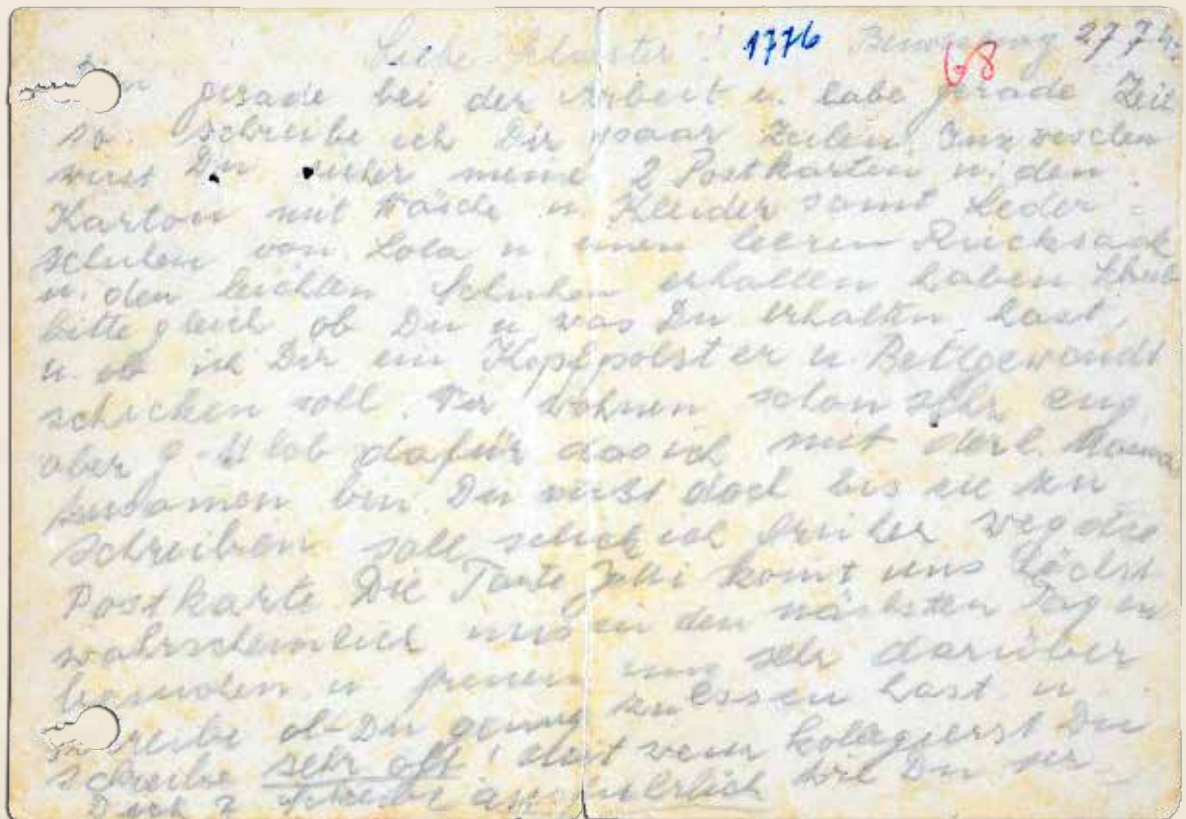 Liebe Schwester! 1776 27 7
68
gerade bei der Arbeit u. habe gerade Zeit
so schreibe ich Dir paar Zeilen. Inzwischen
wirst Du sicher meine 2 Postkarten u. den
Karton mit Wäsche u. Kleider samt Leder-
schuhen von Lola u. einen leeren Rucksack
u. den leichten Schuhen erhalten haben
bitte gleich ob Du u was Du erhalten hast,
u. ob ich Dir ein Kopfpolster u. Bettgewandt
schicken soll. Wir wohnen schon sehr eng
aber g. lob dafür das ich mit der l. Mama
zusamen bin. Du wirst doch bis
schreiben soll, schick ich
Postkarte Die Tante komt uns höchst
wahrscheinlich in den nächsten Tagen
u freuen uns sehr darüber
schreibe ob Du genug zu essen hast u
schreibe sehr oft! Mit wem Du
Dich? ausführlich wie Du